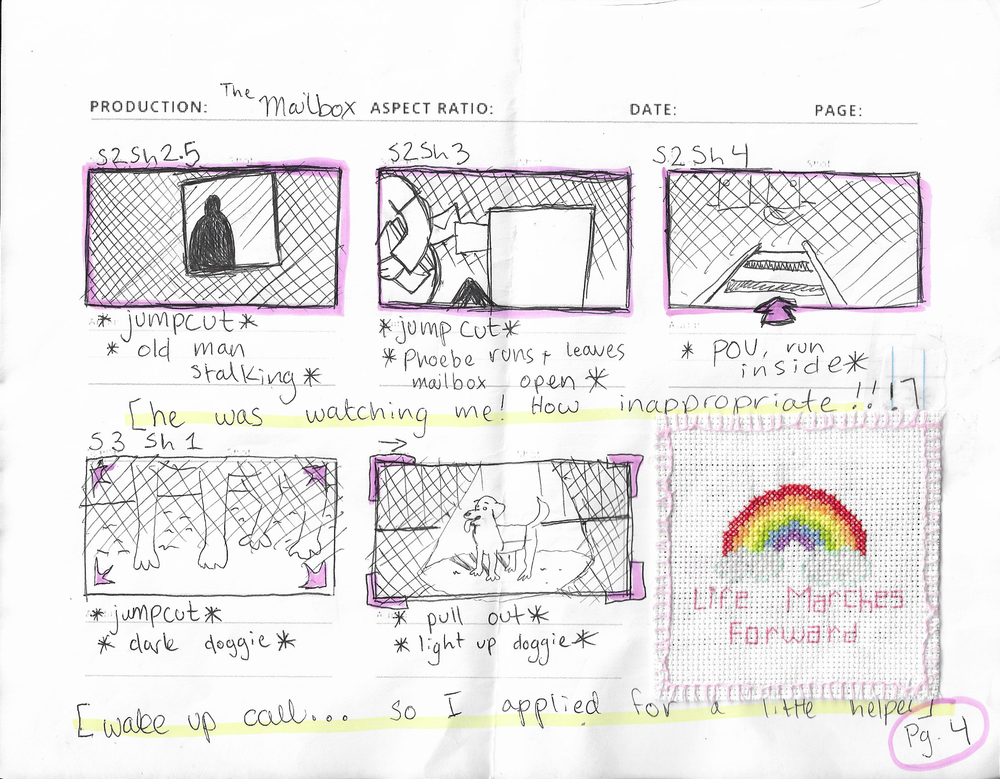 PRODUCTION: The Mailbox ASPECT RATIO: DATE: PAGE:
S2Sh2.5
S2Sh3
S2Sh4
*jumpcut*
* old man
stalking*
*jump cut*
*Phoebe runs + leaves
mailbox open*
* POV, run
inside*
[he was watching me! How inappropriate!!!]
S3 Sh1
*jumpcut*
* dark doggie*
* pull out*
*light up doggie*
Life Marches
Forward
[wake up call... so I applied for a little helper]
Pg. 4